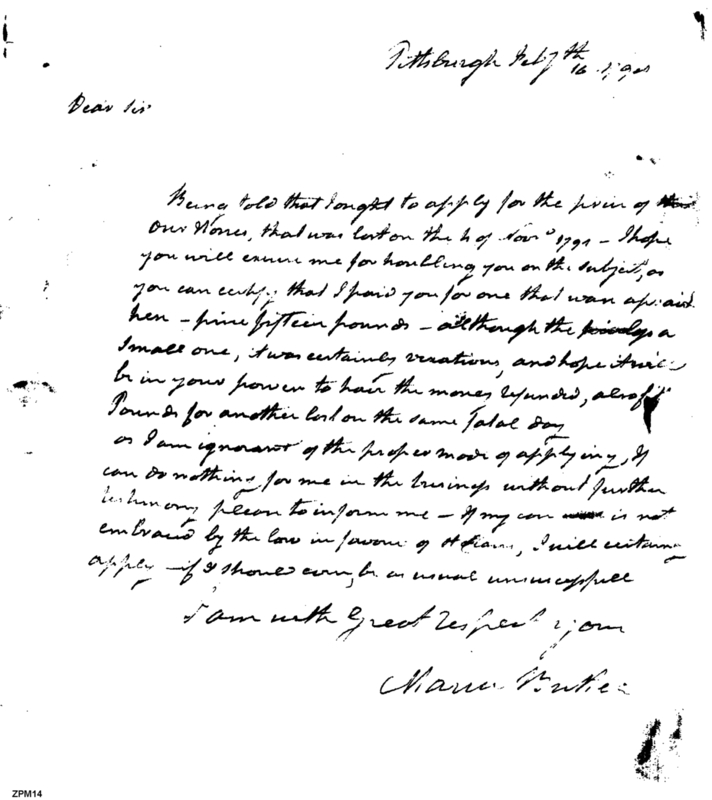 Pittsburgh Feby th
16
Dear Sir
Being told that I ought to apply for the price of
Our Horses, that was lost on the 4 of Novr 1791 - I hope
you will excuse me for troubling you on the subject, as
you can certify that I paid you for one that was
hea - price fifteen pounds - although the is a
Small one, it was certainly vexatious, and hope it will
be in your power to have the money refunded, also
Pounds for another lost on the same Fatal day
as I am ignorant of the proper mode of applying, If
can do nothing for me in the business without further
testimony please to inform me - If my case is not
embraced by the law in favour of I will certainly
apply - if I should even, be as usual unsuccessfull
I am with Great Respect your